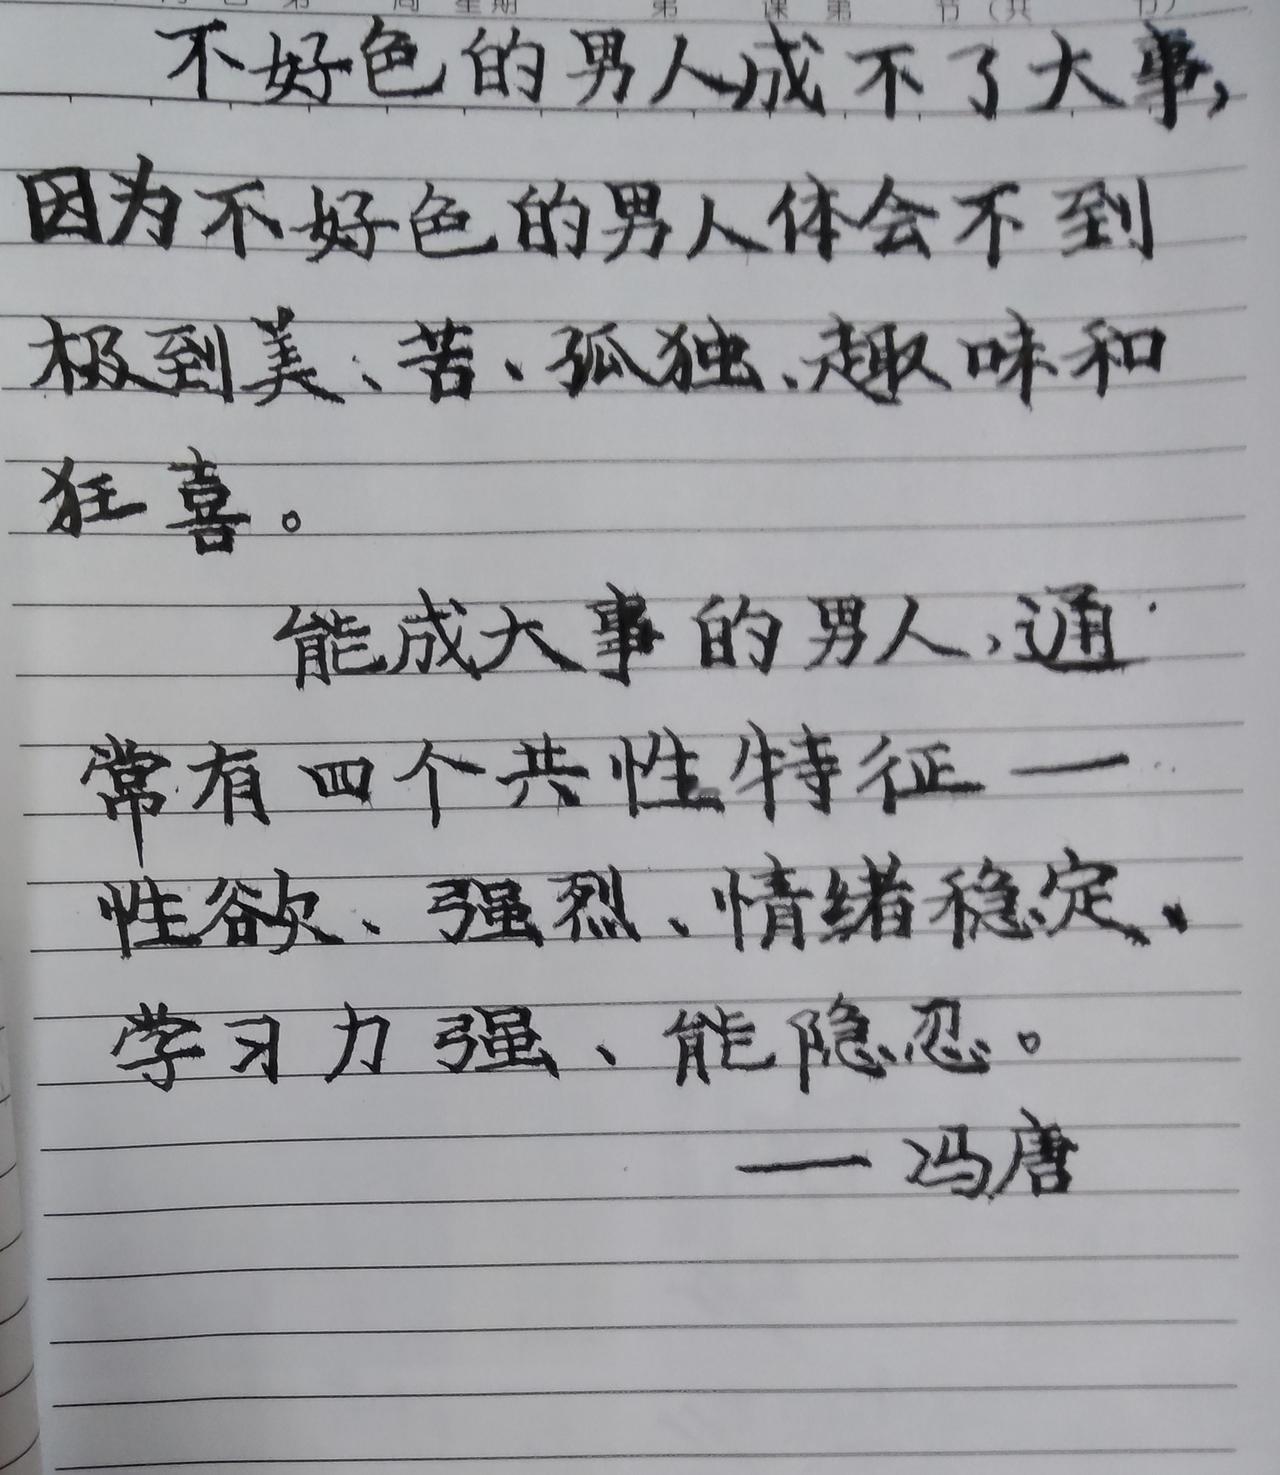 星期 第 课第 节（共 节）
不好色的男人成不了大事，
因为不好色的男人体会不到
极到美、苦、孤独、趣味和
狂喜。
能成大事的男人，通
常有四个共性特征一
性欲、强烈、情绪稳定、
学习力强、能隐忍。
—冯唐